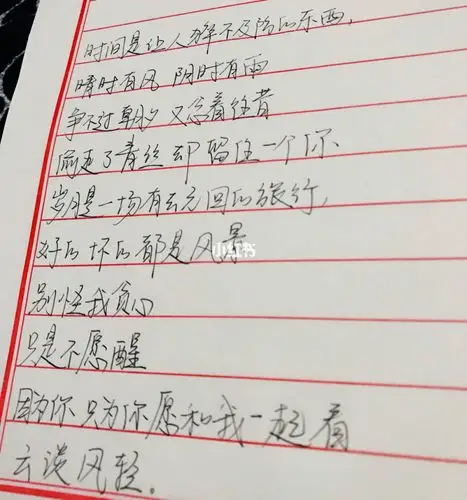 时间是让人猝不及防的东西,
晴时有风 阴时有雨
争不过朝夕 又念着往昔
偷走了青丝却留住一个你.
岁月是一场有去无回的旅行,
好的坏的都是风景
别怪我贪心
只是不愿醒
因为你只为你愿和我一起看
云淡风轻.
小红书